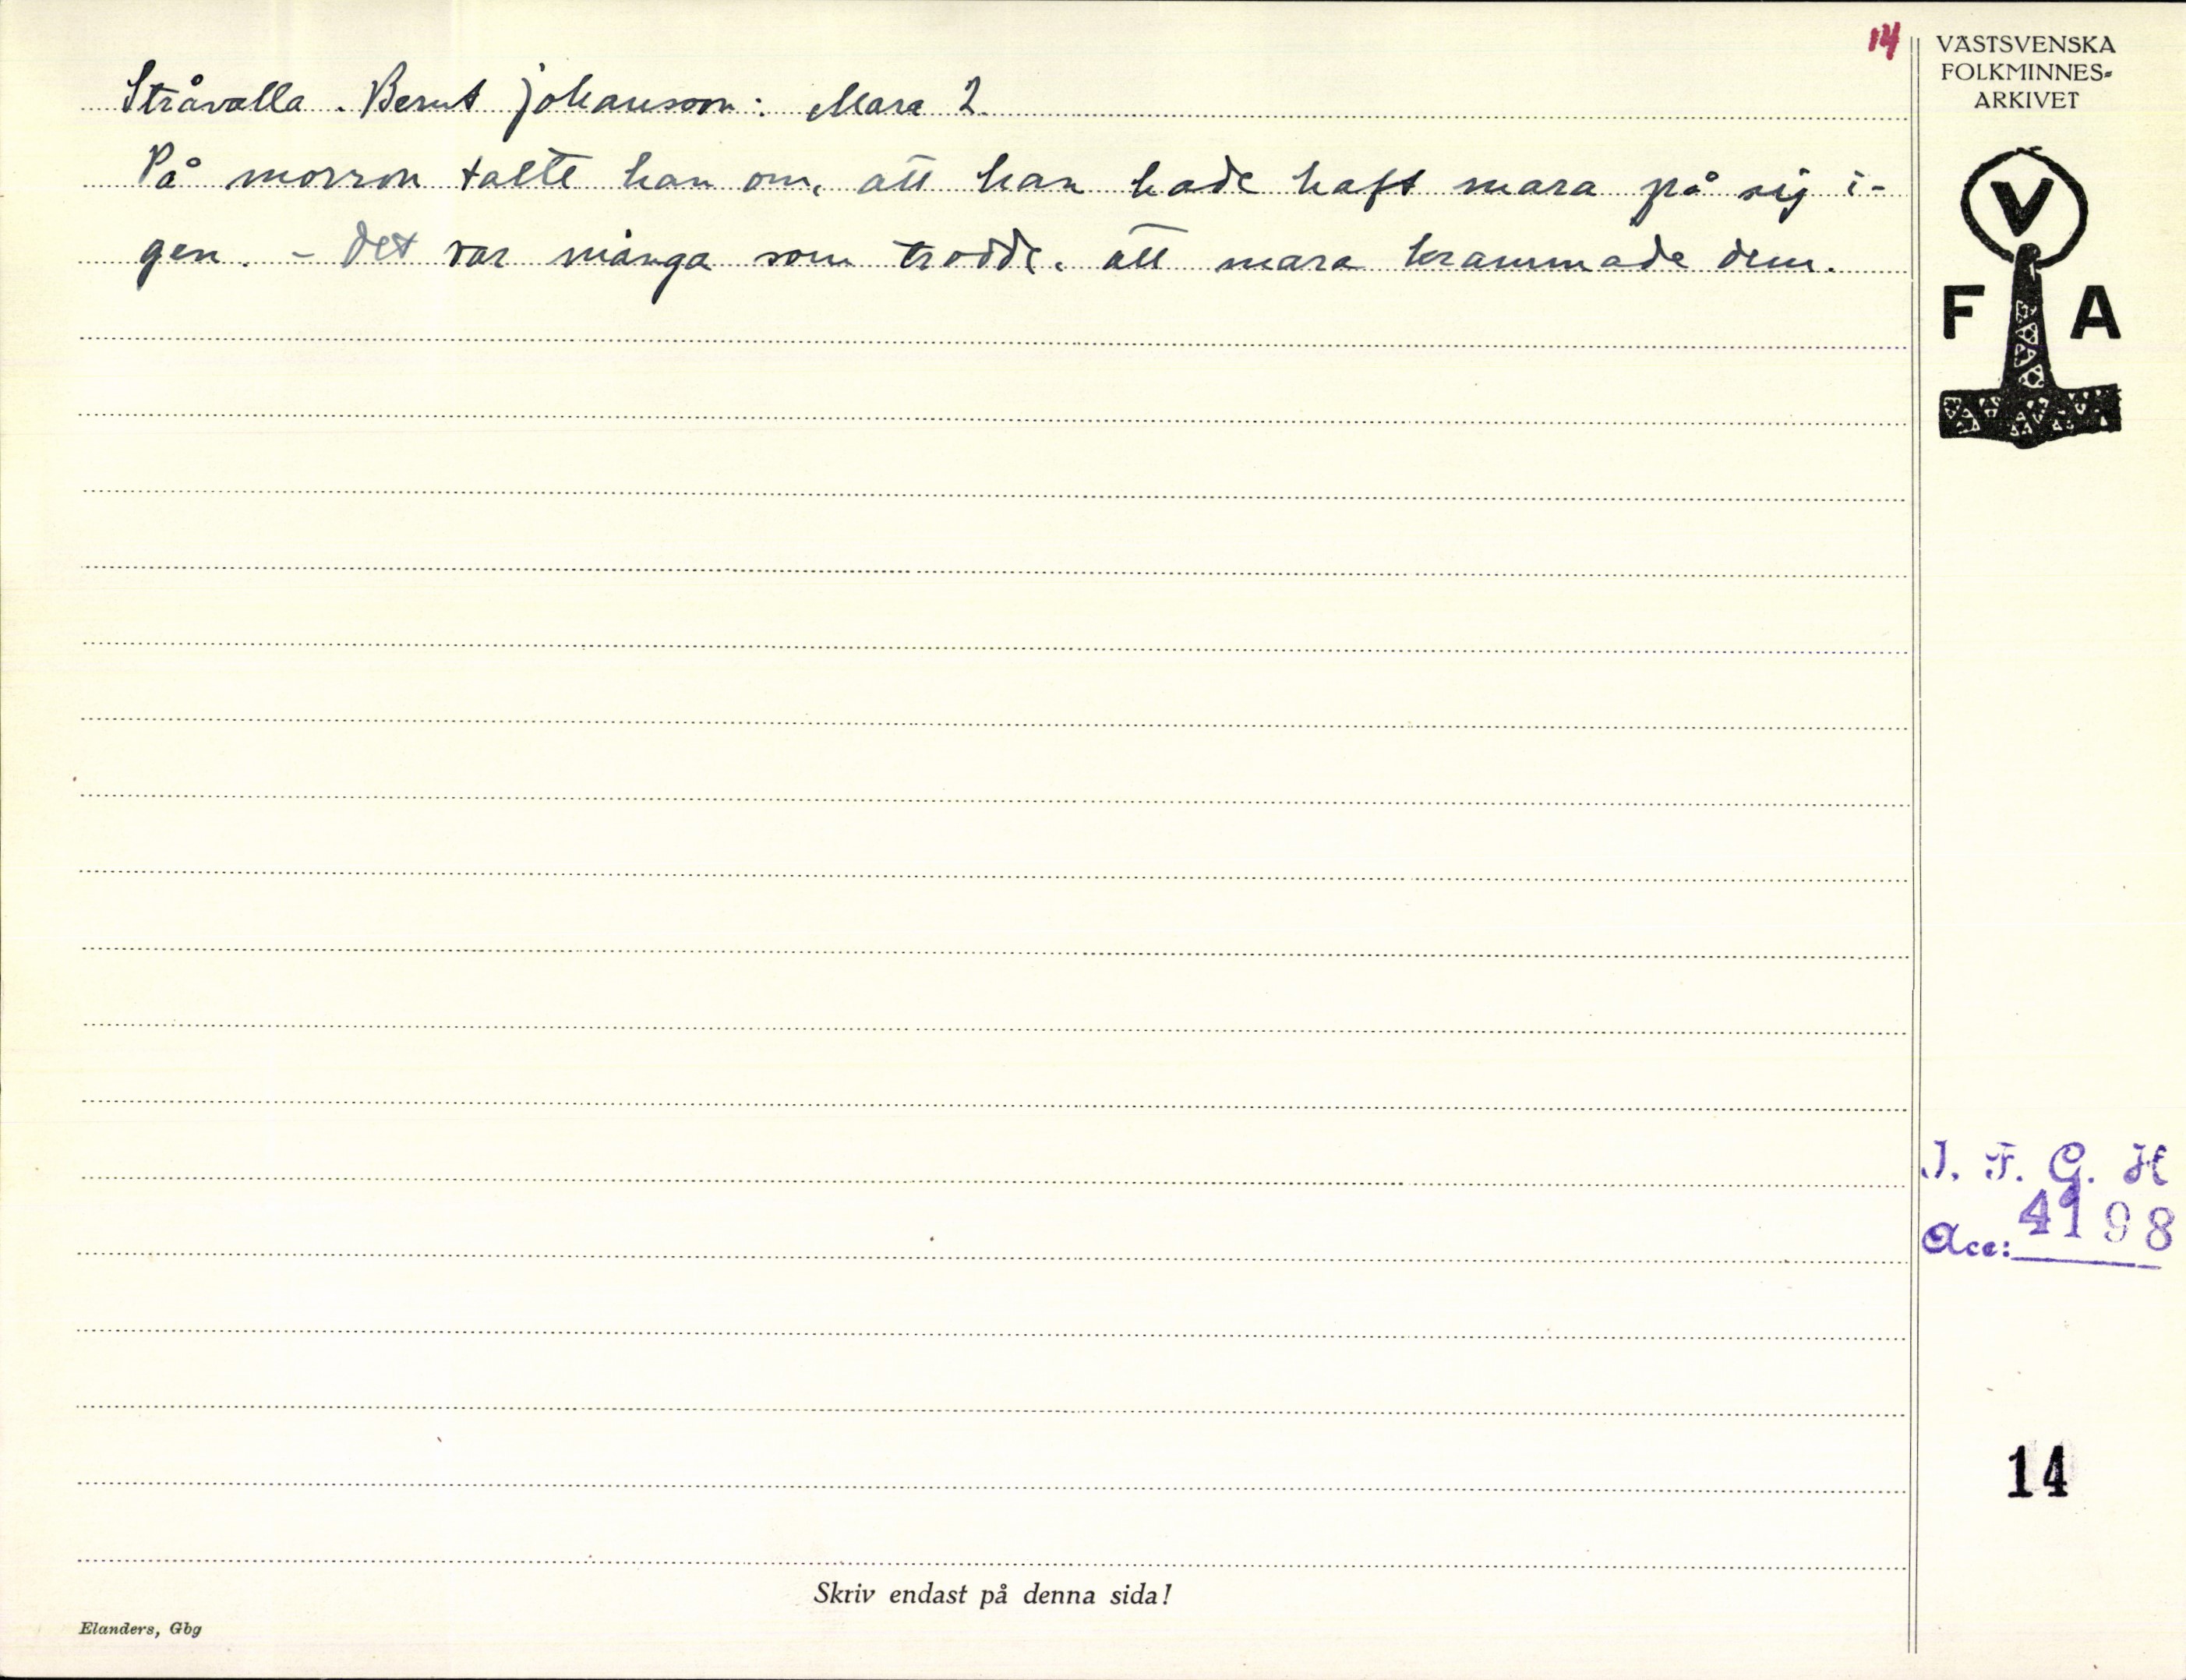 14
Stråvalla. Bernt Johansson: Mara 2.
På morron talte han om, att han hade haft mara på sig i-
gen. - Det var många som trodde, att mara krammade dem.
VÄSTSVENSKA
FOLKMINNES-
ARKIVET
V
F A
I. F. G. H
Acc: 4198
14
Skriv endast på denna sida!
Elanders, Gbg